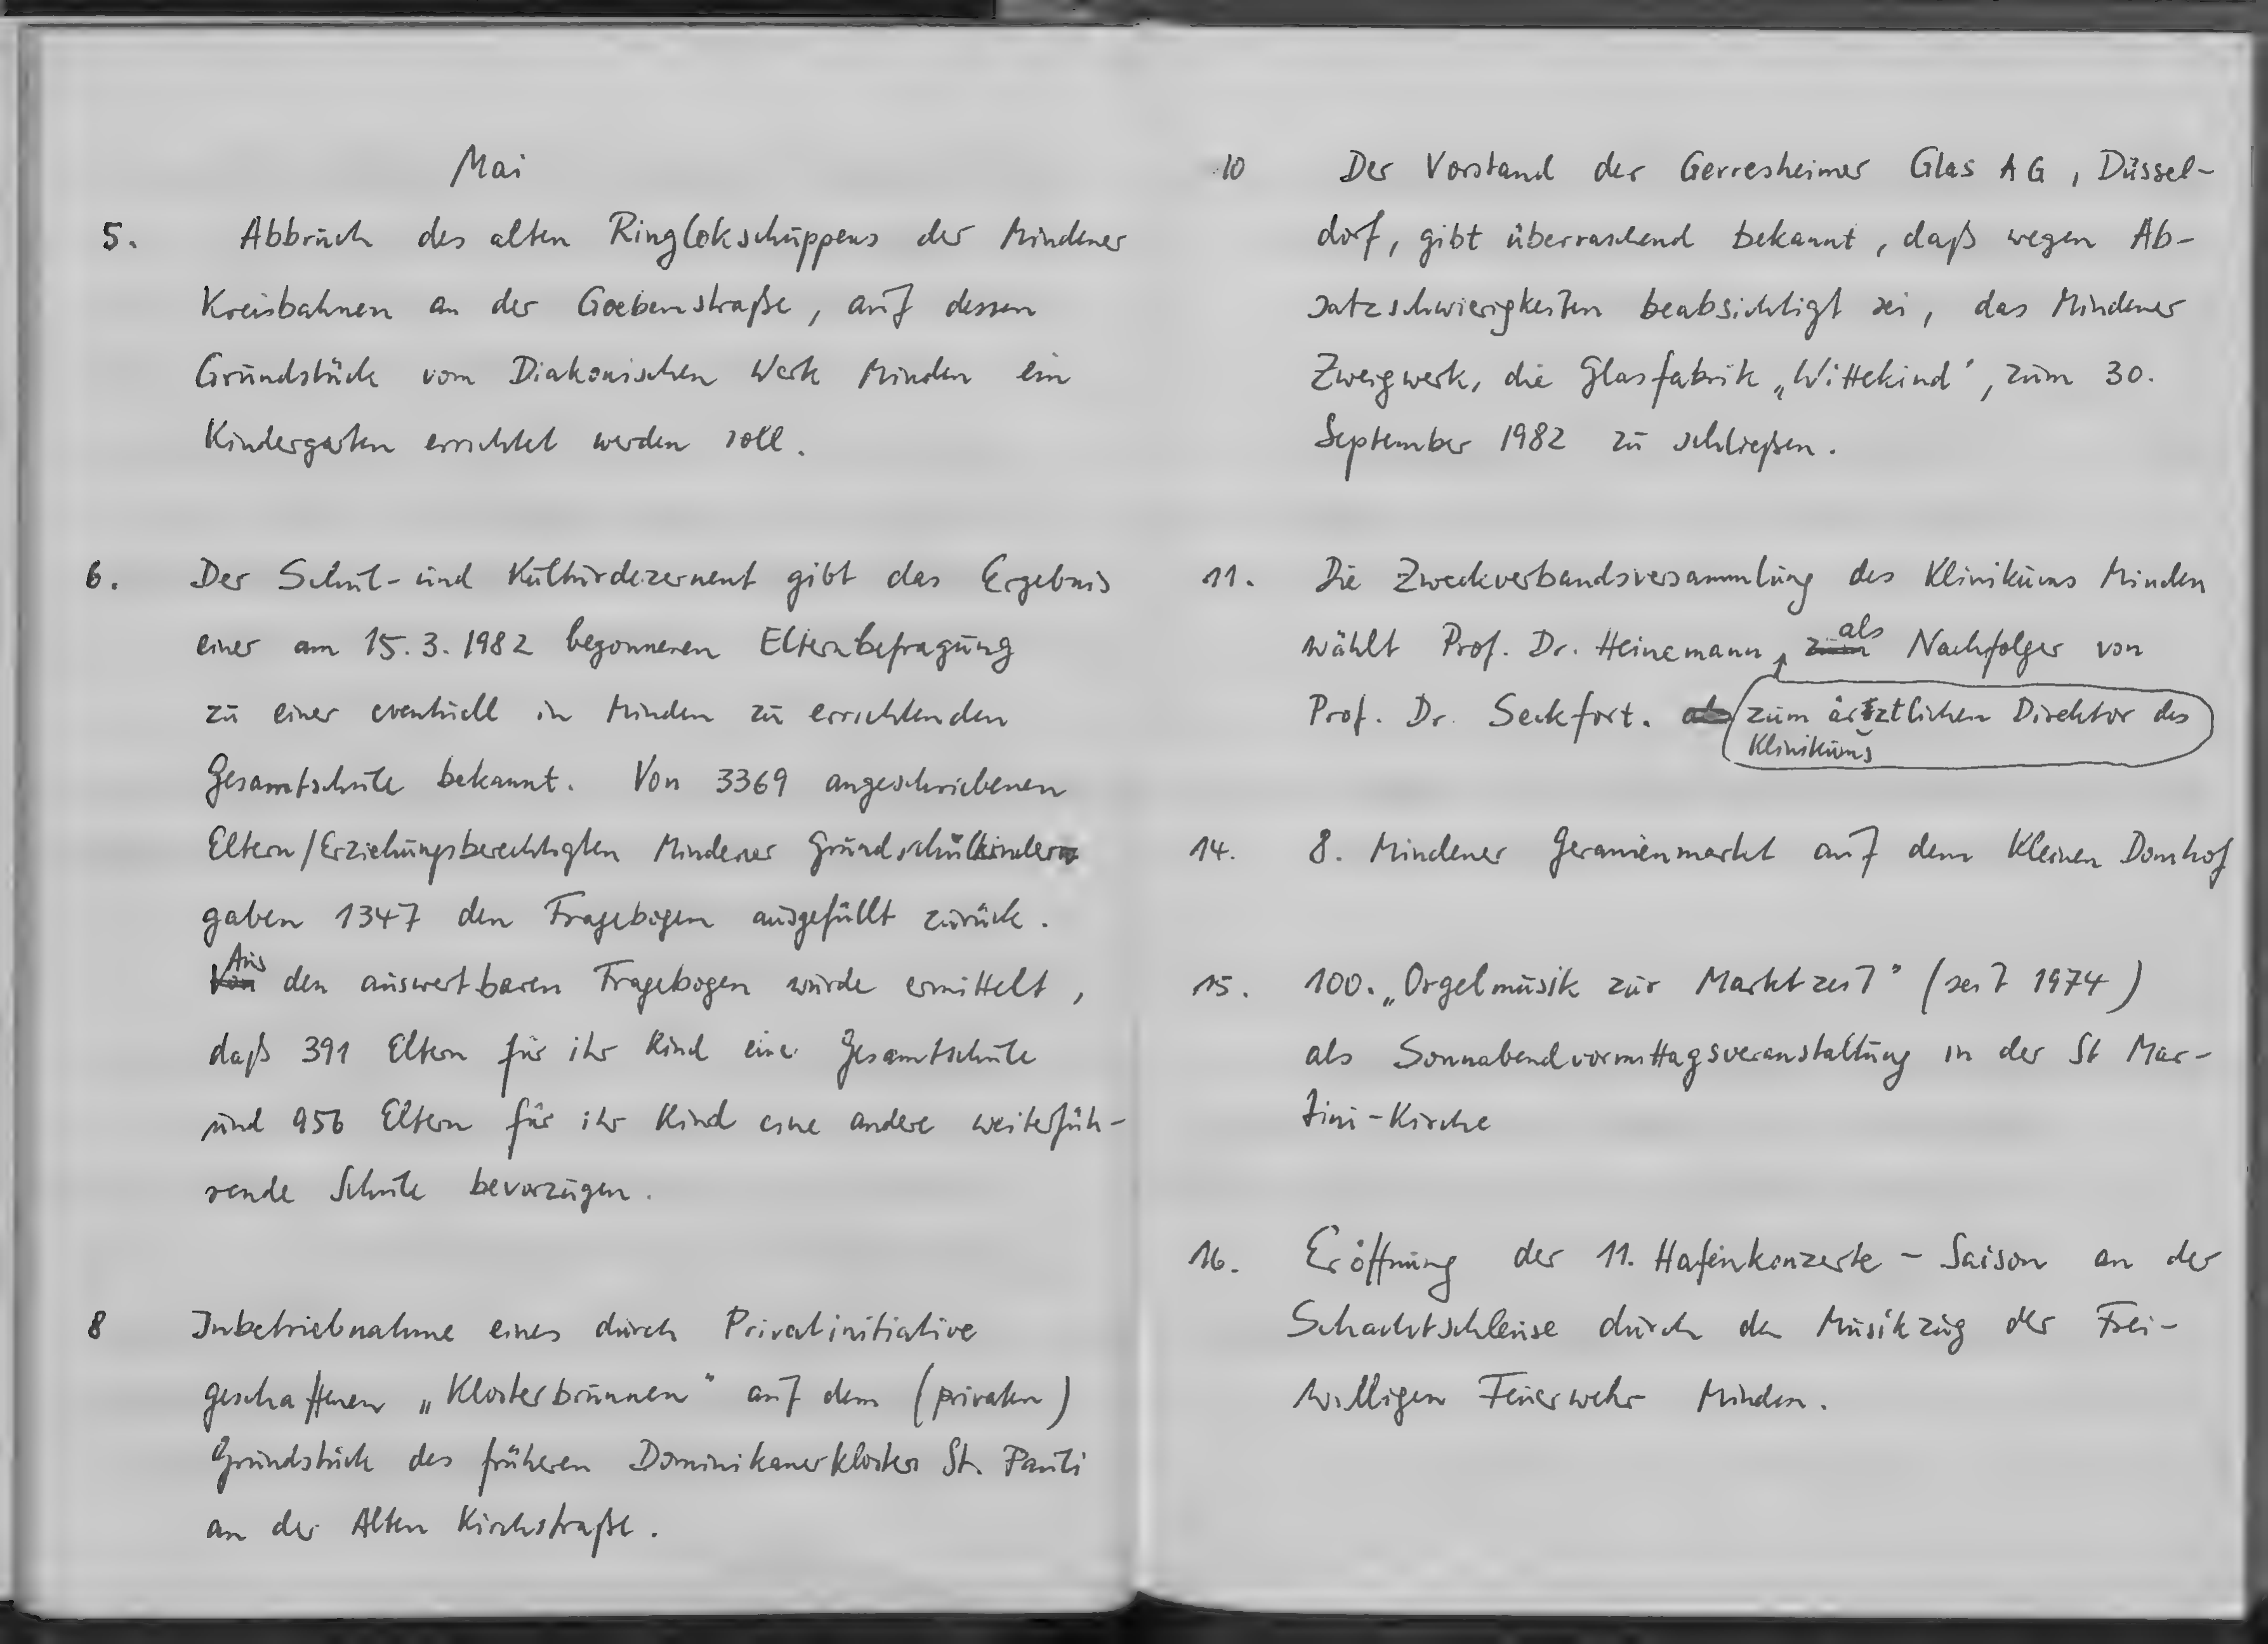 Mai
5. Abbruch des alten Ringlokschuppens der Mindener
Kreisbahnen an der Goebenstraße, auf dessen
Grundstück vom Diakonischen Werk Minden ein
Kindergarten errichtet werden soll.
6. Der Schul- und Kulturdezernent gibt das Ergebnis
einer am 15.3.1982 begonnenen Elternbefragung
zu einer eventuell in Minden zu errichtenden
Gesamtschule bekannt. Von 3369 angeschriebenen
Eltern/Erziehungsberechtigten Mindener Grundschulkinder
gaben 1347 den Fragebogen ausgefüllt zurück.
Aus den auswertbaren Fragebogen wurde ermittelt,
daß 391 Eltern für ihr Kind eine Gesamtschule
und 956 Eltern für ihr Kind eine andere weiterfüh-
rende Schule bevorzugen.
8 Inbetriebnahme eines durch Privatinitiative
geschaffenen „Klosterbrunnen" auf dem (privaten)
Grundstück des früheren Dominikanerklosters St. Pauli
an der Alten Kirchstraße.
10 Der Vorstand der Gerresheimer Glas AG, Düssel-
dorf, gibt überraschend bekannt, daß wegen Ab-
satzschwierigkeiten beabsichtigt sei, das Mindener
Zweigwerk, die Glasfabrik „Wittekind", zum 30.
September 1982 zu schließen.
11. Die Zweckverbandsversammlung des Klinikums Minden
wählt Prof. Dr. Heinemann als Nachfolger von
Prof. Dr. Seckfort. zum ärztlichen Direktor des
Klinikums
14. 8. Mindener Geranienmarkt auf dem Kleinen Domhof
15. 100. „Orgelmusik zur Marktzeit" (seit 1974)
als Sonnabendvormittagsveranstaltung in der St Mar-
tini-Kirche
16. Eröffnung der 11. Hafenkonzerte - Saison an der
Schachtschleuse durch den Musikzug der Frei-
willigen Feuerwehr Minden.